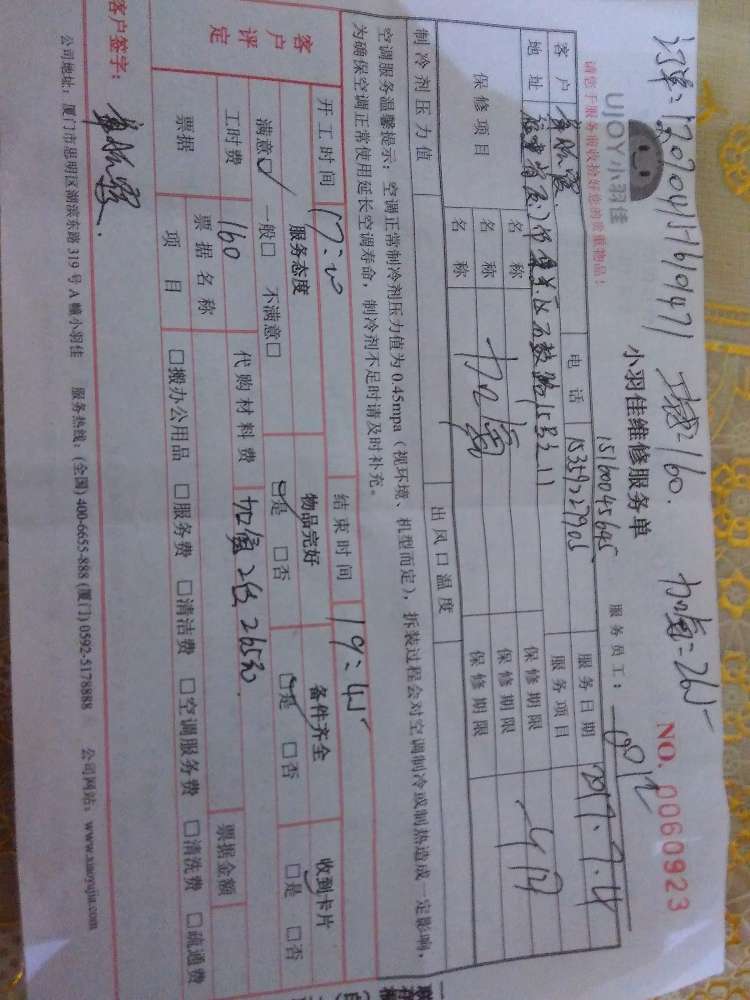 订单:120204151601471 工费160. 加氟:265
UJOY小羽佳
小羽佳维修服务单
NO. 0060923
15160045645
服务员工:
请您于服务前收捡好您的贵重物品!
客户
电话 15359227905
服务日期 2017.7.4
地址 福建省厦门市
服务项目
保修项目
名称
保修期限
名称 加氟
保修期限
名称
保修期限
制冷剂压力值
出风口温度
空调服务温馨提示:空调正常制冷剂压力值为0.45mpa(视环境、机型而定),拆装过程会对空调制冷或制热造成一定影响,
为确保空调正常使用延长空调寿命,制冷剂不足时请及时补充。
开工时间
结束时间 19:45
客户评定
服务态度
物品完好
备件齐全
收到卡片
满意☑ 一般□ 不满意□
☑是 □否
☑是 □否
□是 □否
工时费 160
代购材料费 加氟 265元
票据
票据名称
票据金额
项目
□搬办公用品 □服务费 □清洁费 □空调服务费 □清洗费 □疏通费
客户签字:
公司地址:厦门市思明区湖滨东路319号A幢小羽佳 服务热线:(全国)400-6655-888 (厦门)0592-5178888 公司网站:www.xiaoyujia.com